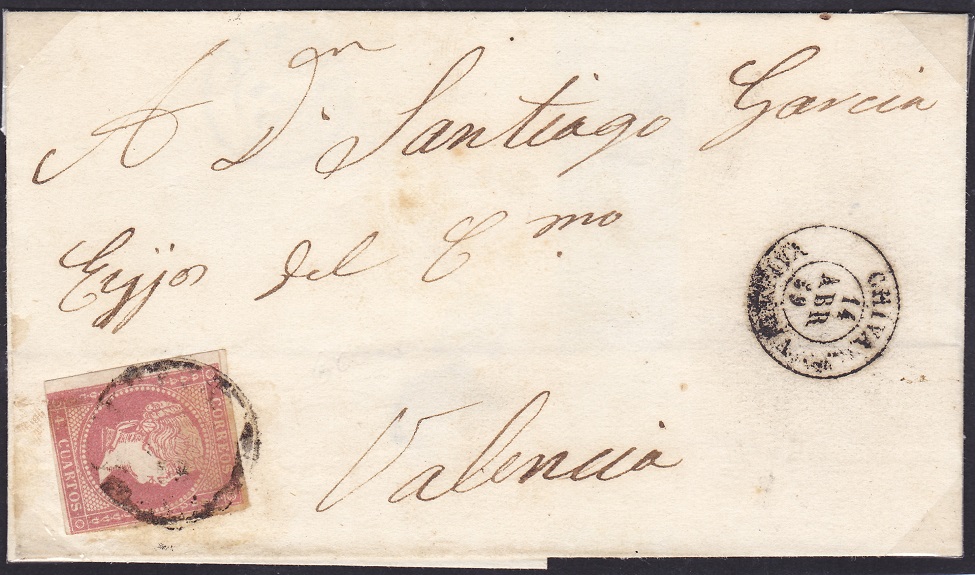 A Dn Santiago Garcia
del Cmo
Valencia
CHIVA
14
ABR
59
VALENCIA
CORREOS
CUARTOS